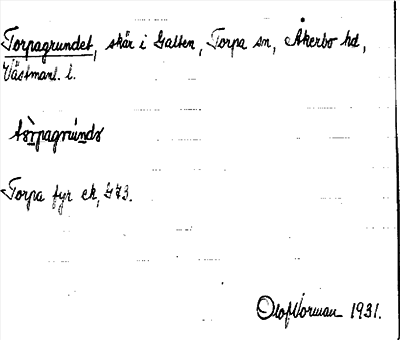 Torpagrundet, skär i Galten, Torpa sn, Åkerbo hd,
Västmanl. l.
Torpa fyr ek, 573.
Olof Norman 1931.